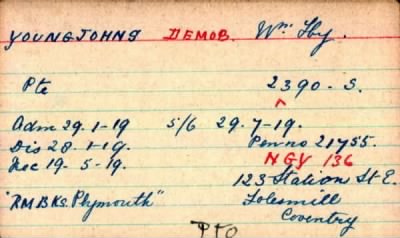 YOUNGJOHNS DEMOB. Wm Hy.
Pte 2390-S.
Adm 29.1-19 5/6 29.7-19.
Dis 28.1-19. Pen no 21455.
Rec 19-5-19. NGY 136
123 Station St E.
"RMBKs. Plymouth" Folesmill
Coventry
PTO